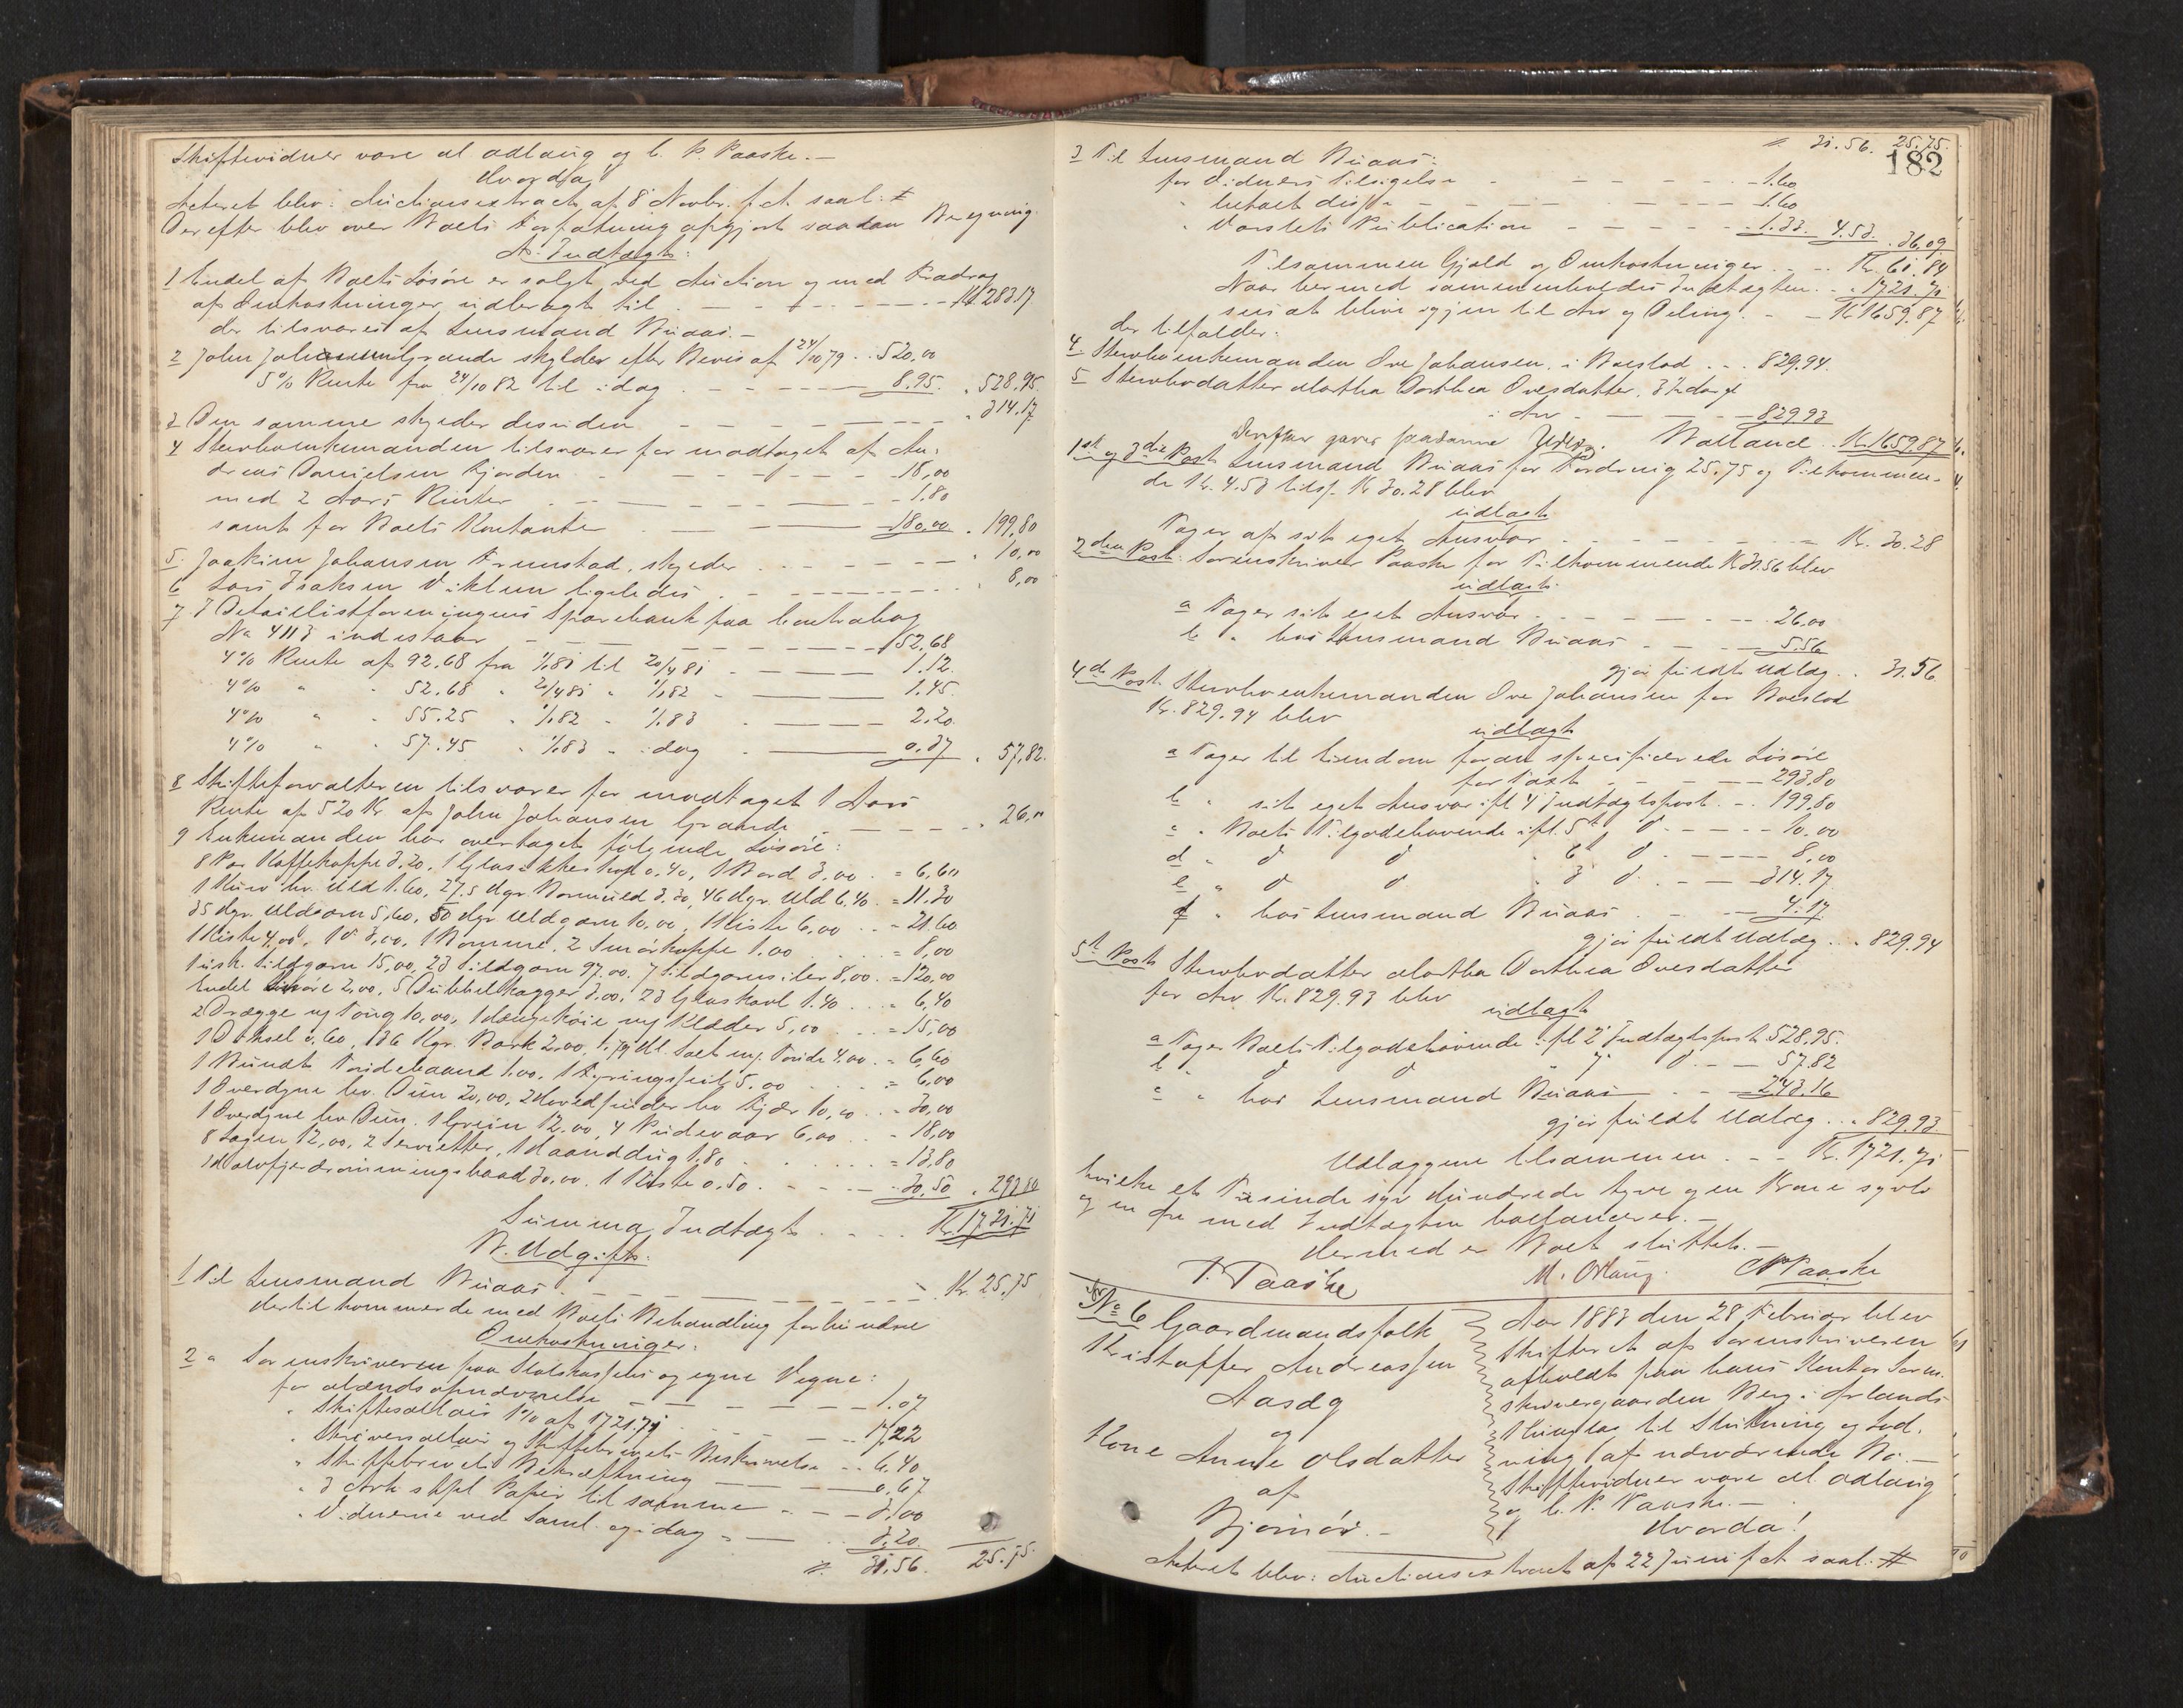 Skiftevidner vare M. Odlaug og C. P. Paaske.—
Hvorda
Acteret blev: Auctionsextract af 8 Novbr. f.A. saal: #
Derefter blev over Boets Forfatning afgjort saadan Beregning:
A. Indtægt:
1 Endel af Boets Løsøre er solgt ved Auction og med Fradrag
af Omkostninger udbragt til - - - - Kr 283.17
der tilsvares af Lensmand Buaas.—
2 John Johansen Grande skylder efter Bevis af 24/10 79 . . 520,00
5% Rente fra 24/10 82 til idag - - - 8.95. „ 528.95.
3 Den samme skylder desuden - - - „ 314.17
4 Sterboenkemanden tilsvarer for modtaget af An-
dreas Danielsen Fjorden - - - 18,00
med 2 Aars Renter - - - 1.80
samt for Boets Contante - - - 180,00 „ 199,80
5. Joakim Johansen Frunstad, skylder - - - „ 10,00
6 Lars Isaksen Viklem ligeledes - - - „ 8,00
7. I Detaillistforeningens Sparebank paa Contrabog
No 4113 indestaar - - - 52.68
4% Rente af 92.68 fra 1/1 81 til 20/4 81 - - - 1.12.
4% „ „ 52.68 „ 20/4 81 „ 1/1 82 - - - 1.45.
4% „ „ 55.25 „ 1/1 82 „ 1/1 83 - - - 2.20.
4% „ „ 57.45 „ 1/1 83 „ idag - - - 0.37 „ 57,82.
8 Skifteforvalteren tilsvarer for modtaget 1 Aars
Rente af 520 Kr af John Johansen Grande - - - „ 26,00
9 Enkemanden har overtaget følgende Løsøre:
8 Par Kaffekoppe 3.20, 1 Glas 0.40, 1 Bord 3,00 . = 6,60
1 Kurv hv. Uld 1.60, 27.5 Hgr. Bomuld 3.30, 46 Hgr. Uld 6.40. = 11.30
35 Hgr. Uldgarn 5,60, 50 Hgr Uldgarn 10,00, 1 Kiste 6,00 . . = 21.60
1 Kiste 4,00, 1 do 3,00, 1 Bomme, 2 Smørkoppe 1.00 = 8,00
1 Sildgarn 15,00, 23 Sildgarn 97.00. 7 Sildgarns 8,00. = 120,00
Endel 2,00, 5 Dubbelkagger 3.00, 23 Glaskavl 1.40 . . = 6,40
2 Drægge og Toug 10,00, 1 Hængekøie og Klæder 5,00 . . = 15,00
1 Øksel 0.60, 136 Kgr. Bark 2,00, 1.79 Hl. Salt og Tønde 4.00 = 6,60
1 Bundt Tøndebaand 1.00, 1 Fyringsseil 5.00 . . . = 6,00
1 Overdyne hv. Dun 20,00, 2 Hovedpuder hv Fjær 10,00 . . = 30,00
1 Overdyne hv Dun, 1 Grøn 12.00, 4 Pudevaar 6,00 . . = 18,00
8 Lagen 12,00, 2 Servietter, 1 Haanddug 1.80 . . . = 13,80
1 Halvfjerdrømmingsbaad 30.00. 1 Kiste 0.50 . - - - 30.50 „ 293.80
Summa Indtægt . . . . Kr. 1721.71
B. Udgift:
1 Til Lensmand Buaas - - - Kr. 25.75
dertil kommer de med Boets Behandling forbundne
Omkostninger:
2 a Sorenskriveren paa Statskassens og egne Vegne:
for Mændsopnævnelse - - - 1.07
„ Skiftesallair 1% af 1721.71 - - - 17,22
„ Skriversallair og Skiftebrevets Beskrivelse . . 6.40
„ Skiftebrevets Bekræftning - - - 0.67
„ 3 Ark stpl. Papir til samme - - - 3,00
„ Vidnerne ved Saml. og idag - - - 3.20
%. 31.56. 25.75.
%. 31.56. 25.75.
182
3 Til Lensmand Buaas:
for Vidners Tilsigelse - - - 1.60
„ betalt disse - - - 1.60
„ Varslets Publication - - - 1.33. 4.53. 36,09
Tilsammen Gjæld og Omkostninger . . . Kr. 61.84
Naar hermed sammenholdes Indtægten . . „ 1721.71
sees at blive igjen til Arv og Deling. - - Kr 1659.87
der tilfalder:
4. Sterboenkemanden Ove Johansen, i Boeslod . . . 829.94.
5 Sterbodatter Martha Dorthea Ovesdatter,
i Arv - - - 829.93
Derefter gaves saadanne Udlæg. Ballance. Kr. 1659.87
1ste og 3die Post Lensmand Buaas for Fordring 25.75 og Tilkommen-
de Kr. 4.53 tils. Kr 30.28 blev
udlagt
Tager af sit eget Ansvar - - - Kr. 30.28
2den Post. Sorenskriver Paaske for Tilkommende Kr 31.56 blev
udlagt:
a Tager sit eget Ansvar - - - 26.00
b „ hos Lensmand Buaas - - - 5.56
gjør fuldt Udlæg . . 31.56
4de Post Sterboenkemanden Ove Johansen for Boeslod
Kr. 829.94 blev
udlagt
a Tager til Eiendom foran specificerede Løsøre
for Taxt - - - 293,80
b „ sit eget Ansvar ifl 4 Indtægtspost. - . 199.80
c „ Boets Tilgodehavende ifl. 5te do - - - 10.00
d „ do do „ 6te do - - - 8,00
e „ do do „ 3 do - - - 314.17
f „ hos Lensmand Buaas - - - 4.17
gjør fuldt Udlæg . . . 829.94
5te Post Sterbodatter Martha Dorthea Ovesdatter
for Arv Kr. 829.93 blev
udlagt
a Tager Boets Tilgodehavende ifl 2 Indtægtspost 528.95.
b „ do do „ 7 do. - - 57.82
c „ hos Lensmand Buaas - - - 243.16
gjør fuldt Udlæg . . . 829.93.
Udlæggene tilsammen . - - Kr. 1721.71
hvilke et Tusinde syv Hundrede tyve og en Krone syvti
og en Øre med Indtægten ballancerer.—
Hermed er Boet sluttet.—
P. Paaske M. Odlaug. C P Paaske
No 6
Gaardmandsfolk
Kristoffer Andreassen
Aasdg
og
Kone Anne Olsdatter
af
Bjørnør.—
Aar 1883 den 28 Februar blev
Skifteret af Sorenskriveren
afholdt paa hans Kontor Soren-
skrivergaarden Berg i Ørlands
Thinglag til Slutning og Lod-
ning af nærværende Bo.—
Skiftevidner vare M. Odlaug
og C. P. Paaske.—
Hvorda!
Acteret blev: Auctionsextract af 22 Juni f.A. saal: #